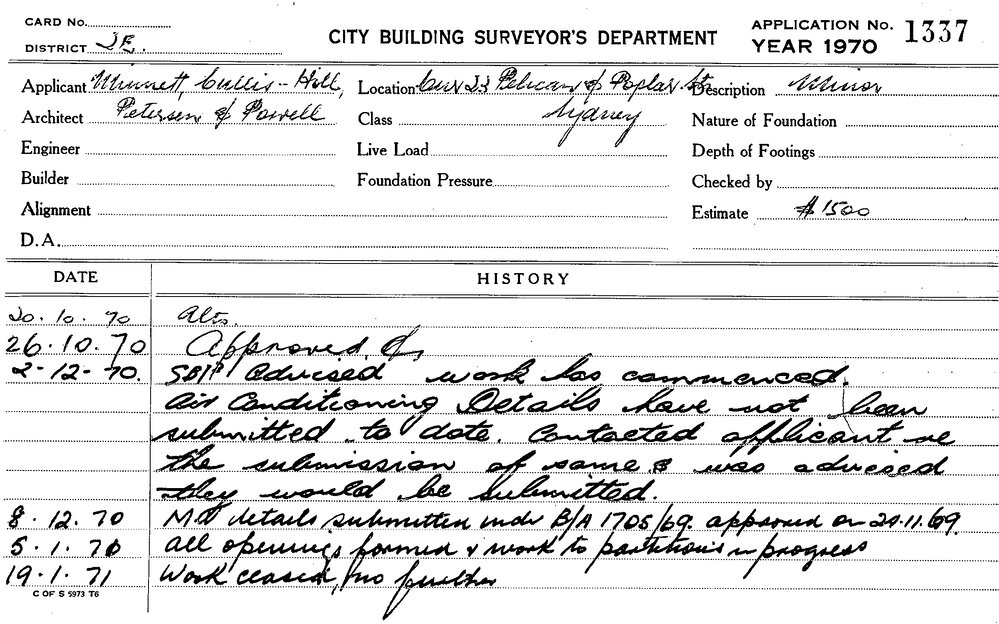 CARD No.
DISTRICT J E.
CITY BUILDING SURVEYOR'S DEPARTMENT
APPLICATION No. 1337
YEAR 1970
Applicant Minnett, Cullis-Hill, Location Cnr 23 Pelican & Poplar Sts Description Minor
Architect Petersen & Powell Class Sydney Nature of Foundation
Engineer Live Load Depth of Footings
Builder Foundation Pressure Checked by
Alignment Estimate $1500
D.A.
DATE HISTORY
20.10.70 Alts.
26.10.70 Approved
2-12-70. advised work has commenced.
Air Conditioning Details have not been
submitted to date. Contacted applicant re
the submission of same & was advised
they would be submitted.
8.12.70 details submitted under B/A 1705/69. approved on 20.11.69.
5.1.70 all openings formed & work to partitions in progress
19.1.71 Work ceased, no further
C OF S 5973 T6